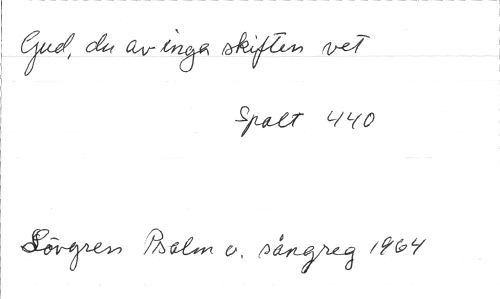 Gud, du av inga skiften vet
Spalt 440
Lövgren Psalm o. sångreg 1964